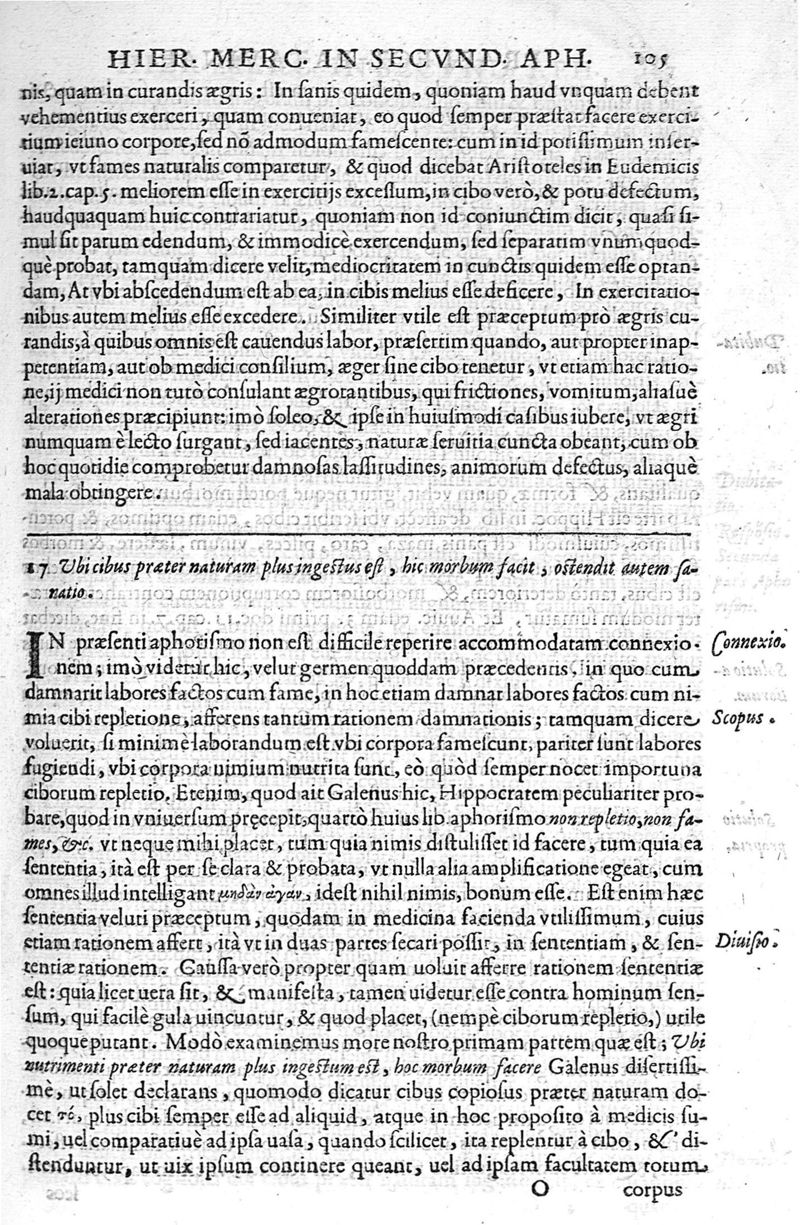 HIER. MERC. IN SECVND. APH. 105
nis, quam in curandis ægris: In sanis quidem, quoniam haud vnquam debent
vehementius exerceri, quam conueniat, eo quod semper præstat facere exerci-
tium ieiuno corpore, sed nõ admodum famescente: cum in id potissimum inser-
uiat, vt fames naturalis comparetur, & quod dicebat Aristoteles in Eudemicis
lib.2.cap.5. meliorem esse in exercitijs excessum, in cibo verò, & potu defectum,
haudquaquam huic contrariatur, quoniam non id coniunctim dicit, quasi si-
mul sit parum edendum, & immodicè exercendum, sed separatim vnumquod-
què probat, tamquam dicere velit, mediocritatem in cunctis quidem esse optan-
dam, At vbi abscedendum est ab ea, in cibis melius esse deficere, In exercitatio-
nibus autem melius esse excedere. Similiter vtile est præceptum prò ægris cu-
randis, à quibus omnis est cauendus labor, præsertim quando, aut propter inap-
petentiam, aut ob medici consilium, æger sine cibo tenetur, vt etiam hac ratio-
ne, ij medici non tutò consulant ægrotantibus, qui frictiones, vomitum, aliasuè
alterationes præcipiunt: imò soleo, & ipse in huiusmodi casibus iubere, vt ægri
numquam è lecto surgant, sed iacentes, naturæ seruitia cuncta obeant, cum ob
hoc quotidie comprobetur damnosas lassitudines, animorum defectus, aliaquè
mala obtingere.
17 Vbi cibus præter naturam plus ingestus est, hic morbum facit, ostendit autem sa-
natio.
IN præsenti aphorismo non est difficile reperire accommodatam connexio-
Connexio.
nem; imò videtur hic, velut germen quoddam præcedentis, in quo cum
damnarit labores factos cum fame, in hoc etiam damnat labores factos cum ni-
mia cibi repletione, afferens tantum rationem damnationis; tamquam dicere
Scopus.
voluerit, si minimè laborandum est vbi corpora famescunt, pariter sunt labores
fugiendi, vbi corpora nimium nutrita sunt, eò quòd semper nocet importuna
ciborum repletio. Etenim, quod ait Galenus hic, Hippocratem peculiariter pro-
bare, quod in vniuersum pręcepit, quartò huius lib. aphorismo non repletio, non fa-
mes, &c. vt neque mihi placet, tum quia nimis distulisset id facere, tum quia ea
sententia, ità est per se clara & probata, vt nulla alia amplificatione egeat, cum
omnes illud intelligant μηδὲν ἄγαν, idest nihil nimis, bonum esse. Est enim hæc
sententia veluti præceptum, quodam in medicina facienda vtilissimum, cuius
etiam rationem affert, ità vt in duas partes secari possit, in sententiam, & sen-
Diuisio.
tentiæ rationem. Caussa verò propter quam uoluit afferre rationem sententiæ
est: quia licet uera sit, & manifesta, tamen uidetur esse contra hominum sen-
sum, qui facilè gula uincuntur, & quod placet, (nempè ciborum repletio,) utile
quoque putant. Modò examinemus more nostro primam partem quæ est; Vbi
nutrimenti præter naturam plus ingestum est, hoc morbum facere Galenus disertissi-
mè, ut solet declarans, quomodo dicatur cibus copiosus præter naturam do-
cet τό, plus cibi semper esse ad aliquid, atque in hoc proposito à medicis su-
mi, uel comparatiuè ad ipsa uasa, quando scilicet, ita replentur à cibo, & di-
stenduntur, ut uix ipsum continere queant, uel ad ipsam facultatem totum
O corpus